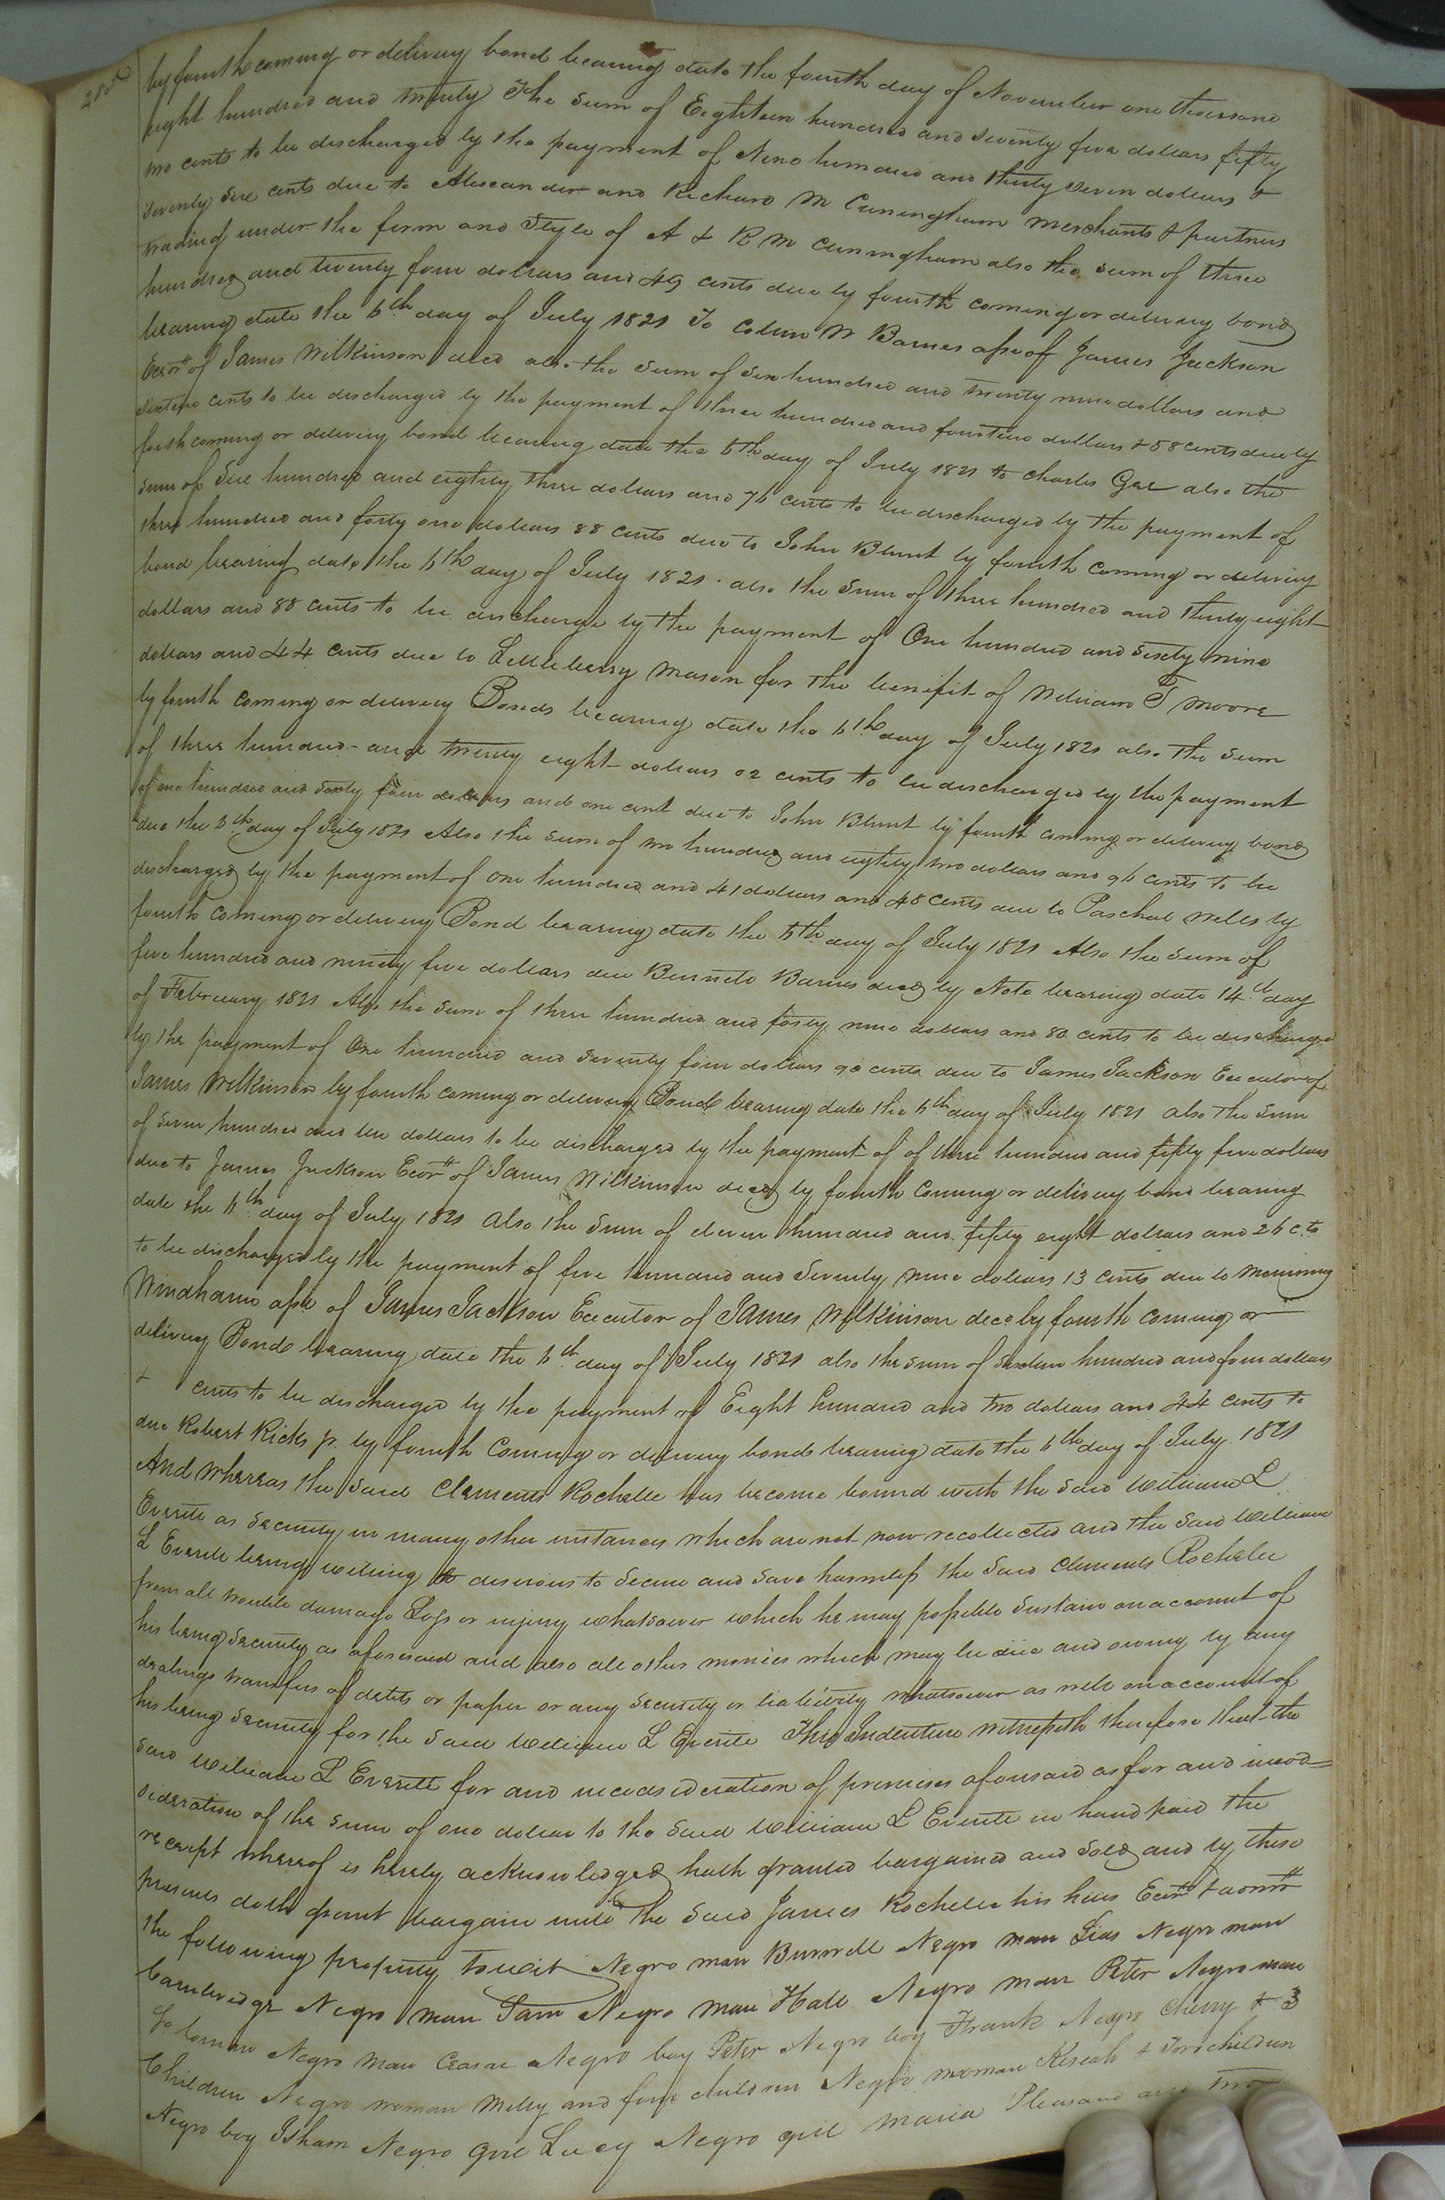 by fourth coming or delivery bond bearing date the fourth day of November one thousand
eight hundred and twenty The sum of Eighteen hundred and seventy five dollars fifty
two cents to be discharged by the payment of Nine hundred and thirty seven dollars &
seventy six cents due to Alexander and Richard M Cuningham merchants & partners
trading under the firm and style of A & R M Cunningham also the sum of three
hundred and twenty four dollars and 49 cents due by fourth coming or delivery bond
bearing date the 6th day of July 1821 To Collin W Barnes asse of James Jackson
Ecor of James Wilkinson decd also the sum of six hundred and twenty nine dollars and
sixteen cents to be discharged by the payment of three hundred and fourteen dollars & 58 cents due by
forth coming or delivery bond bearing date the 6th day of July 1821 to Charles Gee also the
sum of Six hundred and eighty three dollars and 76 cents to be discharged by the payment of
three hundred and forty one dollars 88 cents due to John Blunt by fourth coming or delivery
bond bearing date the 6th day of July 1821. also the sum of three hundred and thirty eight
dollars and 88 cents to be discharge by the payment of One hundred and sixty nine
dollars and 44 cents due to Littleberry Mason for the benifit of William T Moore
by fourth coming or delivery Bonds bearing date the 6th day of July 1821 also the sum
of three hundred and twenty eight dollars 02 cents to be discharged by the payment
of one hundred and sixty four dollars and one cent due to John Blunt by fourth coming or delivery bond
due the 6th day of July 1821 Also the sum of two hundred and eighty two dollars and 96 cents to be
discharged by the payment of one hundred and 41 dollars and 48 cents due to Paschal Wells by
fourth coming or delivery Bond bearing date the 6th day of July 1821 Also the sum of
five hundred and ninety five dollars due Bennett Barnes decd by Note bearing date 14th day
of February 1821 Also the sum of three hundred and forty nine dollars and 80 cents to be discharged
by the payment of One hundred and seventy four dollars 90 cents due to James Jackson Executor of
James Wilkinson by fourth coming or delivery Bond bearing date the 6th day of July 1821 also the sum
of seven hundred and ten dollars to be discharged by the payment of of three hundred and fifty five dollars
due to James Jackson Ecor of James Wilkinson decd by fourth coming or delivery bond bearing
date the 6th day of July 1821 Also the sum of eleven hundred and fifty eight dollars and 26 cts
to be discharged by the payment of five hundred and seventy nine dollars 13 cents due to Mourning
Windham asse of James Jackson Executor of James Wilkinson decd by fourth coming or
delivery Bonds bearing date the 6th day of July 1821 also the sum of sixteen hundred and four dollars
& cents to be discharged by the payment of Eight hundred and two dollars and 44 cents to
due Robert Ricks jr. by fourth coming or delivery bond bearing date the 6th day of July 1821
And whereas the said Clements Rochelle has become bound with the said William L
Everitt as security in many other instances which are not now recollected and the said William
L Everitt being willing & desirous to secure and save harmless the said Clements Rochelle
from all trouble damage Loss or injury whatsoever which he may possible sustain on account of
his being security as aforesaid and also all other monies which may be due and owing by any
dealings transfers of debts or paper or any security or liability whatsoever as well on account of
his being security for the said William L Everitt This Indenture witnesseth therefore that the
said William L Everitt for and in consideration of premises aforesaid as for and in con=
sideration of the sum of one dollar to the said William L Everitt in hand paid the
receipt whereof is hereby acknowledged hath granted bargained and sold and by these
presents doth grant bargain unto the said James Rochelle his heirs Ecors & admrs
the following property to wit Negro man Burwell Negro man Negro man
Cambridge Negro man Sam Negro man Hall Negro man Peter Negro man
Solomon Negro man Ceasar Negro boy Peter Negro boy Frank Negro Cherry & 3
Children Negro woman Milly and four children Negro woman Kesiah & Two children
Negro boy Isham Negro girl Lucy Negro girl Maria Pleasand and two